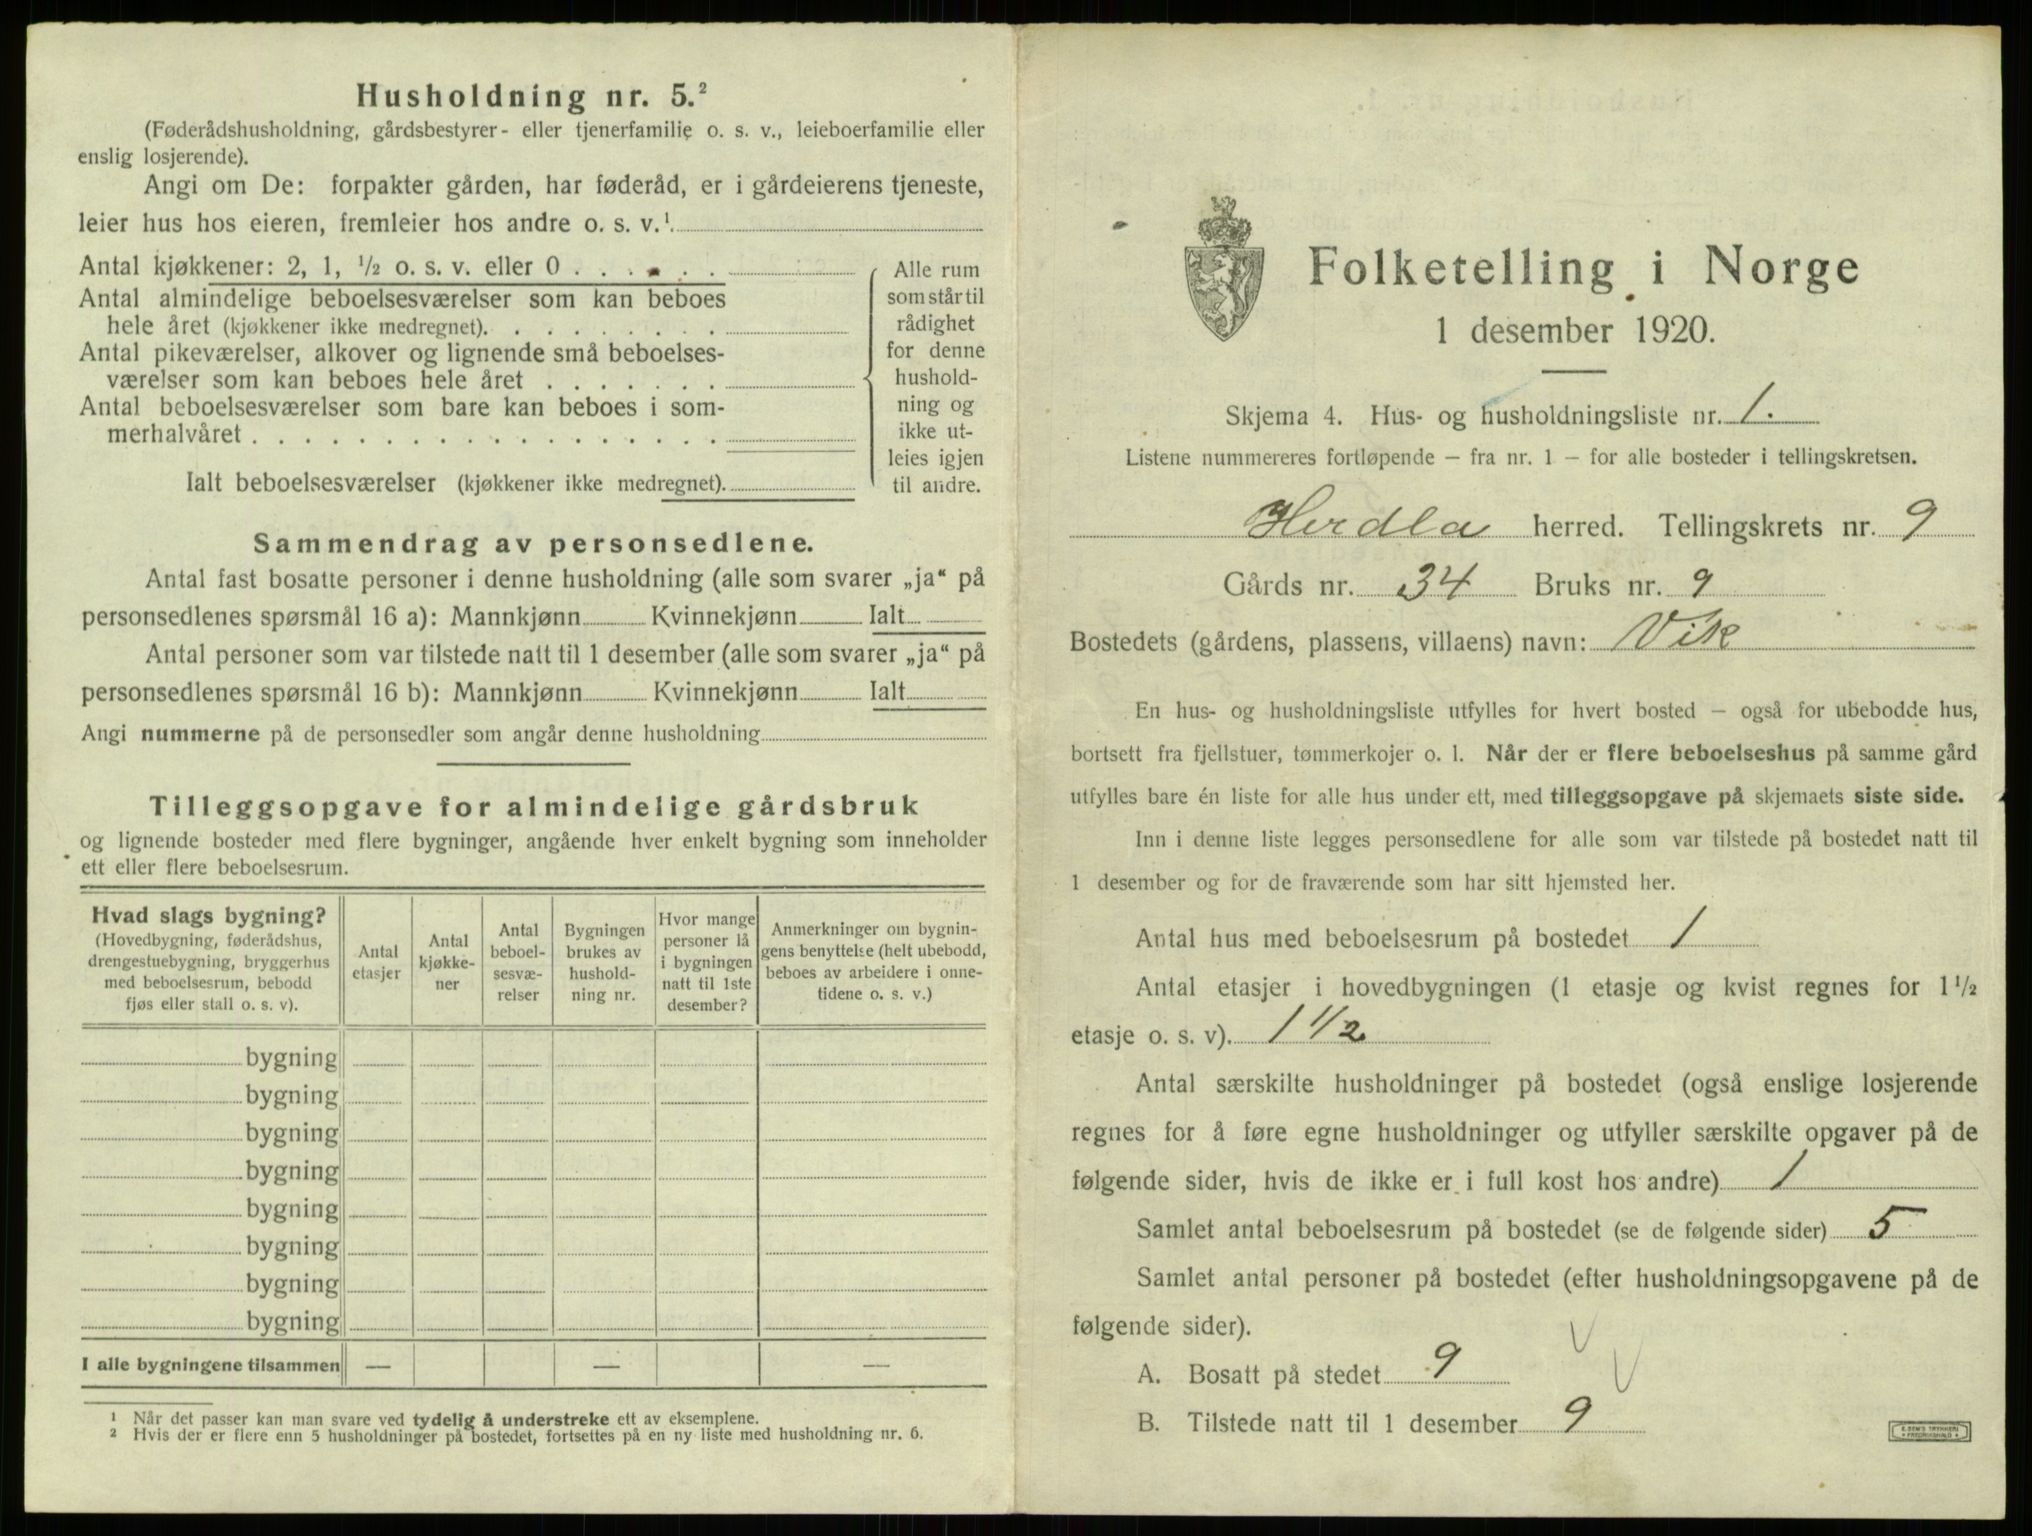 Husholdning nr. 5.²
(Føderådshusholdning, gårdsbestyrer- eller tjenerfamilie o. s. v., leieboerfamilie eller
enslig losjerende).
Angi om De: forpakter gården, har føderåd, er i gårdeierens tjeneste,
leier hus hos eieren, fremleier hos andre o. s. v.¹
Antal kjøkkener: 2, 1, ½ o. s. v. eller 0 . . . . .
Antal almindelige beboelsesværelser som kan beboes
hele året (kjøkkener ikke medregnet). . . . . . . . .
Antal pikeværelser, alkover og lignende små beboelses-
værelser som kan beboes hele året . . . . . . .
Antal beboelsesværelser som bare kan beboes i som-
merhalvåret . . . . . . . . . . . . . . . . . .
Ialt beboelsesværelser (kjøkkener ikke medregnet).
Alle rum
som står til
rådighet
for denne
hushold-
ning og
ikke ut-
leies igjen
til andre.
Sammendrag av personsedlene.
Antal fast bosatte personer i denne husholdning (alle som svarer „ja“ på
personsedlenes spørsmål 16 a): Mannkjønn Kvinnekjønn Ialt
Antal personer som var tilstede natt til 1 desember (alle som svarer „ja“ på
personsedlenes spørsmål 16 b): Mannkjønn Kvinnekjønn Ialt
Angi nummerne på de personsedler som angår denne husholdning
Tilleggsopgave for almindelige gårdsbruk
og lignende bosteder med flere bygninger, angående hver enkelt bygning som inneholder
ett eller flere beboelsesrum.
Hvad slags bygning?
(Hovedbygning, føderådshus,
drengestuebygning, bryggerhus
med beboelsesrum, bebodd
fjøs eller stall o. s. v).
Antal
etasjer
Antal
kjøkke-
ner
Antal
beboel-
sesvæ-
relser
Bygningen
brukes av
hushold-
ning nr.
Hvor mange
personer lå
i bygningen
natt til 1ste
desember?
Anmerkninger om bygnin-
gens benyttelse (helt ubebodd,
beboes av arbeidere i onne-
tidene o. s. v.)
bygning
bygning
bygning
bygning
bygning
bygning
bygning
bygning
I alle bygningene tilsammen — — —
¹ Når det passer kan man svare ved tydelig å understreke ett av eksemplene.
² Hvis der er flere enn 5 husholdninger på bostedet, fortsettes på en ny liste med husholdning nr. 6.
Folketelling i Norge
1 desember 1920.
Skjema 4. Hus- og husholdningsliste nr. 1.
Listene nummereres fortløpende — fra nr. 1 — for alle bosteder i tellingskretsen.
Herdla herred. Tellingskrets nr. 9
Gårds nr. 34 Bruks nr. 9
Bostedets (gårdens, plassens, villaens) navn: Vik
En hus- og husholdningsliste utfylles for hvert bosted — også for ubebodde hus,
bortsett fra fjellstuer, tømmerkojer o. l. Når der er flere beboelseshus på samme gård
utfylles bare én liste for alle hus under ett, med tilleggsopgave på skjemaets siste side.
Inn i denne liste legges personsedlene for alle som var tilstede på bostedet natt til
1 desember og for de fraværende som har sitt hjemsted her.
Antal hus med beboelsesrum på bostedet 1
Antal etasjer i hovedbygningen (1 etasje og kvist regnes for 1 ½
etasje o. s. v). 1 1/2
Antal særskilte husholdninger på bostedet (også enslige losjerende
regnes for å føre egne husholdninger og utfyller særskilte opgaver på de
følgende sider, hvis de ikke er i full kost hos andre) 1
Samlet antal beboelsesrum på bostedet (se de følgende sider) 5
Samlet antal personer på bostedet (efter husholdningsopgavene på de
følgende sider).
A. Bosatt på stedet 9
B. Tilstede natt til 1 desember 9